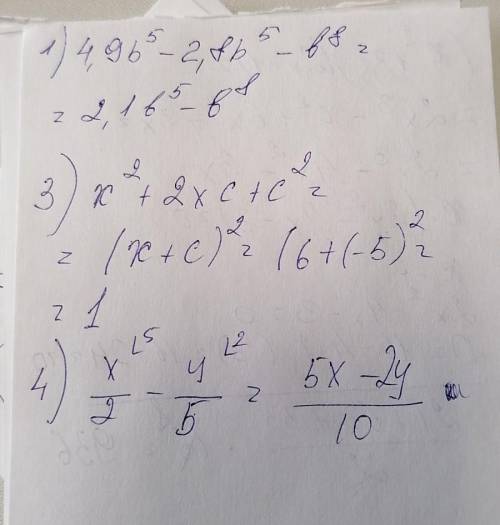 1) 4,9b⁵ - 2,8b⁵ - b⁸ =
= 2,1b⁵ - b⁸
3) x² + 2xc + c² =
= (x + c)² = (6 + (-5))² =
= 1
4) x⌊⁵/2 - y⌊²/5 = 5x - 2y/10